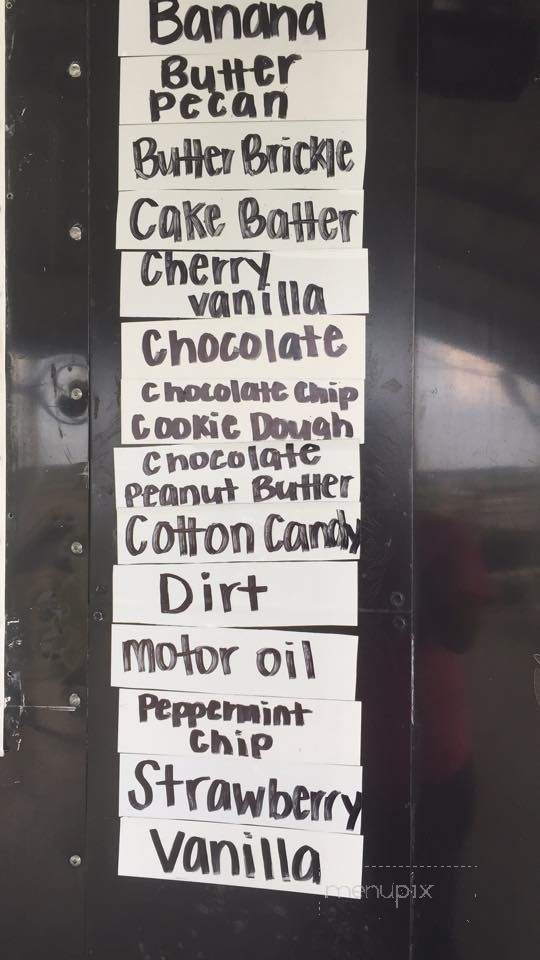 Banana
Butter
Pecan
Butter Brickle
Cake Batter
Cherry
vanilla
Chocolate
Chocolate Chip
Cookie Dough
Chocolate
Peanut Butter
Cotton Candy
Dirt
motor oil
Peppermint
Chip
Strawberry
Vanilla
menupix